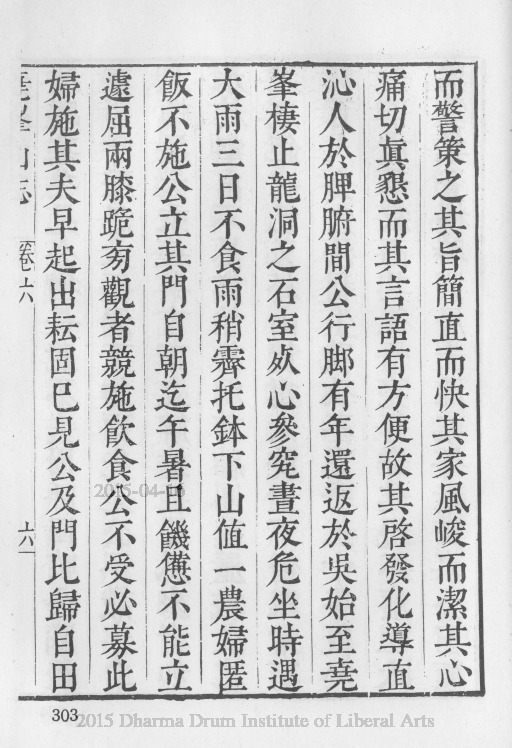 而警策之其旨簡直而快其家風峻而潔其心
痛切眞懇而其言語有方便故其啓發化導直
沁人於脾腑間公行脚有年還返於吳始至堯
峯棲止龍洞之石室㚏心參究晝夜危坐時遇
大雨三日不食雨稍霽托鉢下山值一農婦匿
飯不施公立其門自朝迄午暑且饑憊不能立
遽屈兩膝跪旁觀者競施飲食公不受必募此
婦施其夫早起出耘固巳見公及門比歸自田
堯峯山志
卷六
六
303
2015-04-16
2015 Dharma Drum Institute of Liberal Arts